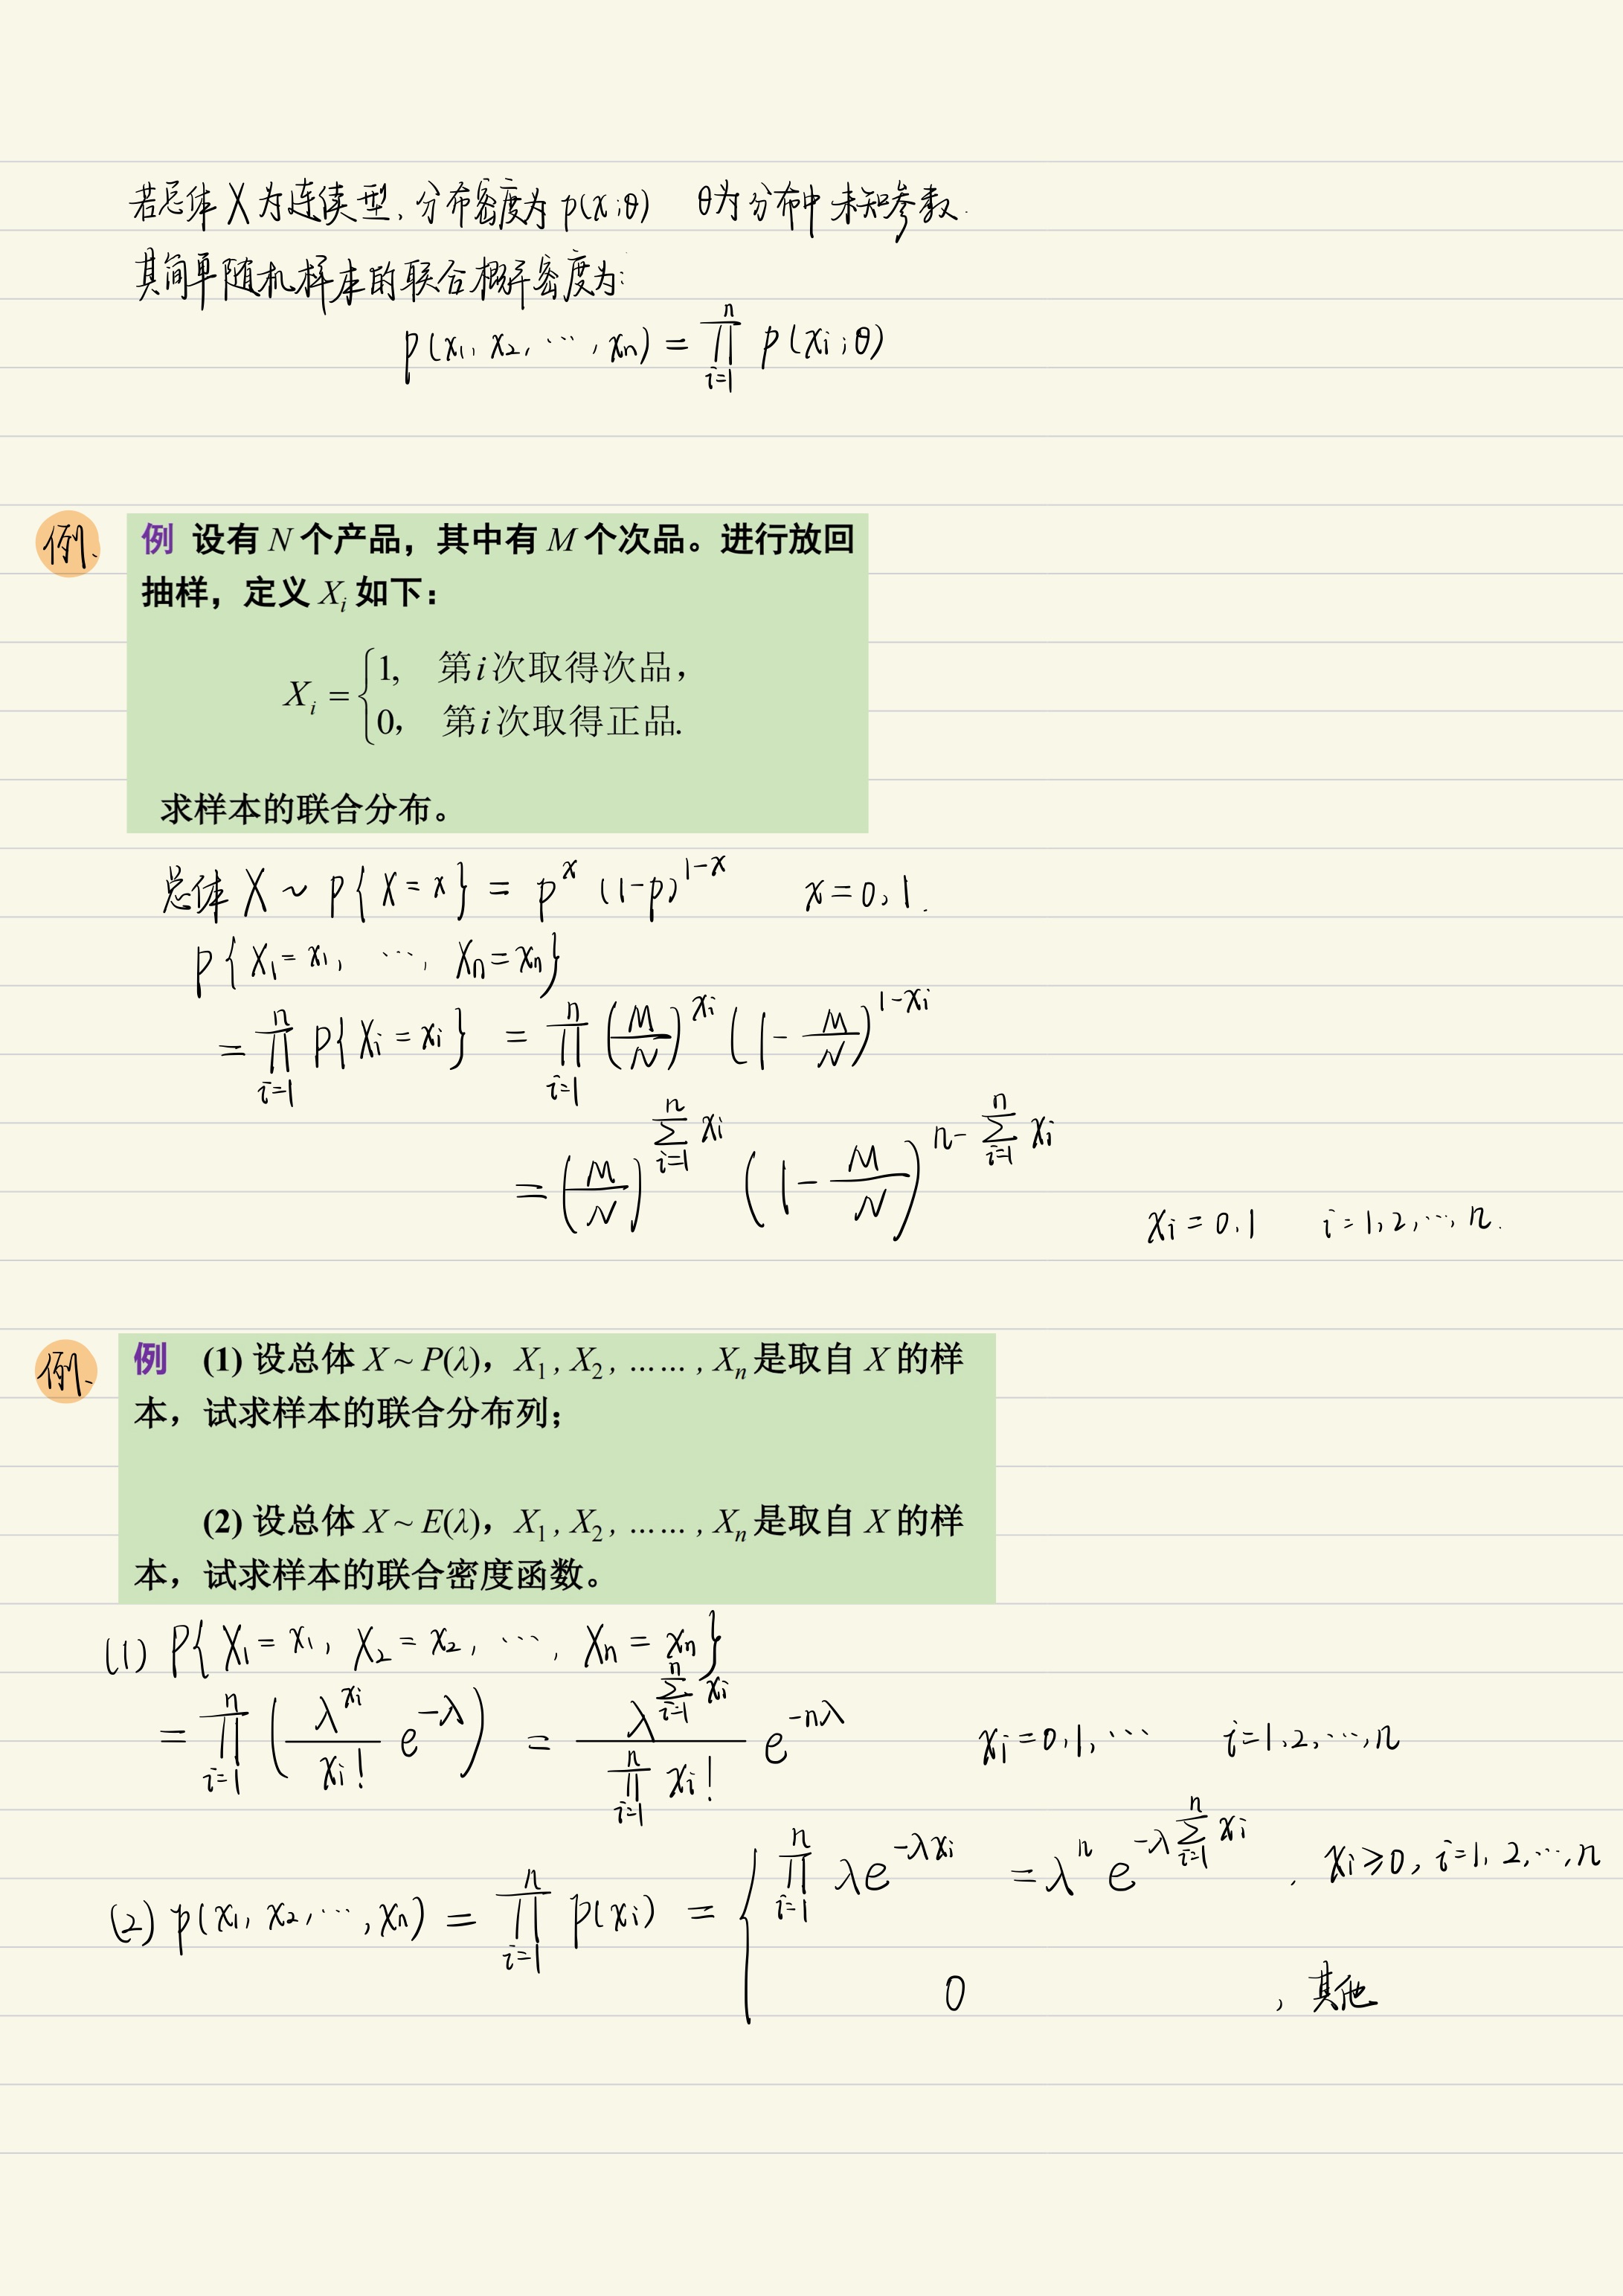 若总体X为连续型,分布密度为 p(x;θ) θ为分布中未知参数.
其简单随机样本的联合概率密度为:
p(x₁, x₂, ⋯, xₙ) = ∏ⁿᵢ₌₁ p(xᵢ;θ)
例.
例 设有 N 个产品，其中有 M 个次品。进行放回
抽样，定义 Xᵢ 如下：
Xᵢ = { 1, 第i次取得次品,
0, 第i次取得正品.
求样本的联合分布。
总体 X ~ P{X = x} = p^x (1-p)^(1-x) x = 0, 1.
P{X₁ = x₁, ⋯, Xₙ = xₙ}
= ∏ⁿᵢ₌₁ P{Xᵢ = xᵢ} = ∏ⁿᵢ₌₁ (M/N)^(xᵢ) (1 - M/N)^(1-xᵢ)
= (M/N)^(∑ⁿᵢ₌₁ xᵢ) (1 - M/N)^(n - ∑ⁿᵢ₌₁ xᵢ) xᵢ = 0, 1 i = 1, 2, ⋯, n.
例.
例 (1) 设总体 X ~ P(λ)，X₁ , X₂ , …… , Xₙ 是取自 X 的样
本，试求样本的联合分布列；
(2) 设总体 X ~ E(λ)，X₁ , X₂ , …… , Xₙ 是取自 X 的样
本，试求样本的联合密度函数。
(1) P{X₁ = x₁, X₂ = x₂, ⋯, Xₙ = xₙ}
= ∏ⁿᵢ₌₁ (λ^(xᵢ)/xᵢ! e^(-λ)) = λ^(∑ⁿᵢ₌₁ xᵢ)/∏ⁿᵢ₌₁ xᵢ! e^(-nλ) xᵢ = 0, 1, ⋯ i = 1, 2, ⋯, n
(2) p(x₁, x₂, ⋯, xₙ) = ∏ⁿᵢ₌₁ p(xᵢ) = { ∏ⁿᵢ₌₁ λe^(-λxᵢ) = λⁿ e^(-λ∑ⁿᵢ₌₁ xᵢ) , xᵢ ≥ 0, i = 1, 2, ⋯, n
0 , 其他